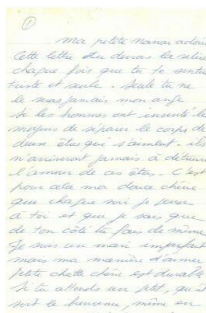 ①
ma petite maman adorée
Cette lettre tu devras la relire
chaque fois que tu te sentiras
triste et seule. Seule tu ne
le seras jamais mon ange
Si les hommes ont inventé les
moyens de séparer le corps de
deux êtres qui s'aiment, ils
n'arriveront jamais à détruire
l'amour de ces êtres. C'est
pour cela ma douce chérie
que chaque soir je pense
à toi et que je sais que
de ton côté tu fais de même
Je suis un mari imparfait
mais ma manière d'aimer
petite chatte chérie est durable
Si tu attends un ptit, qu'il
soit le bienvenu, même en